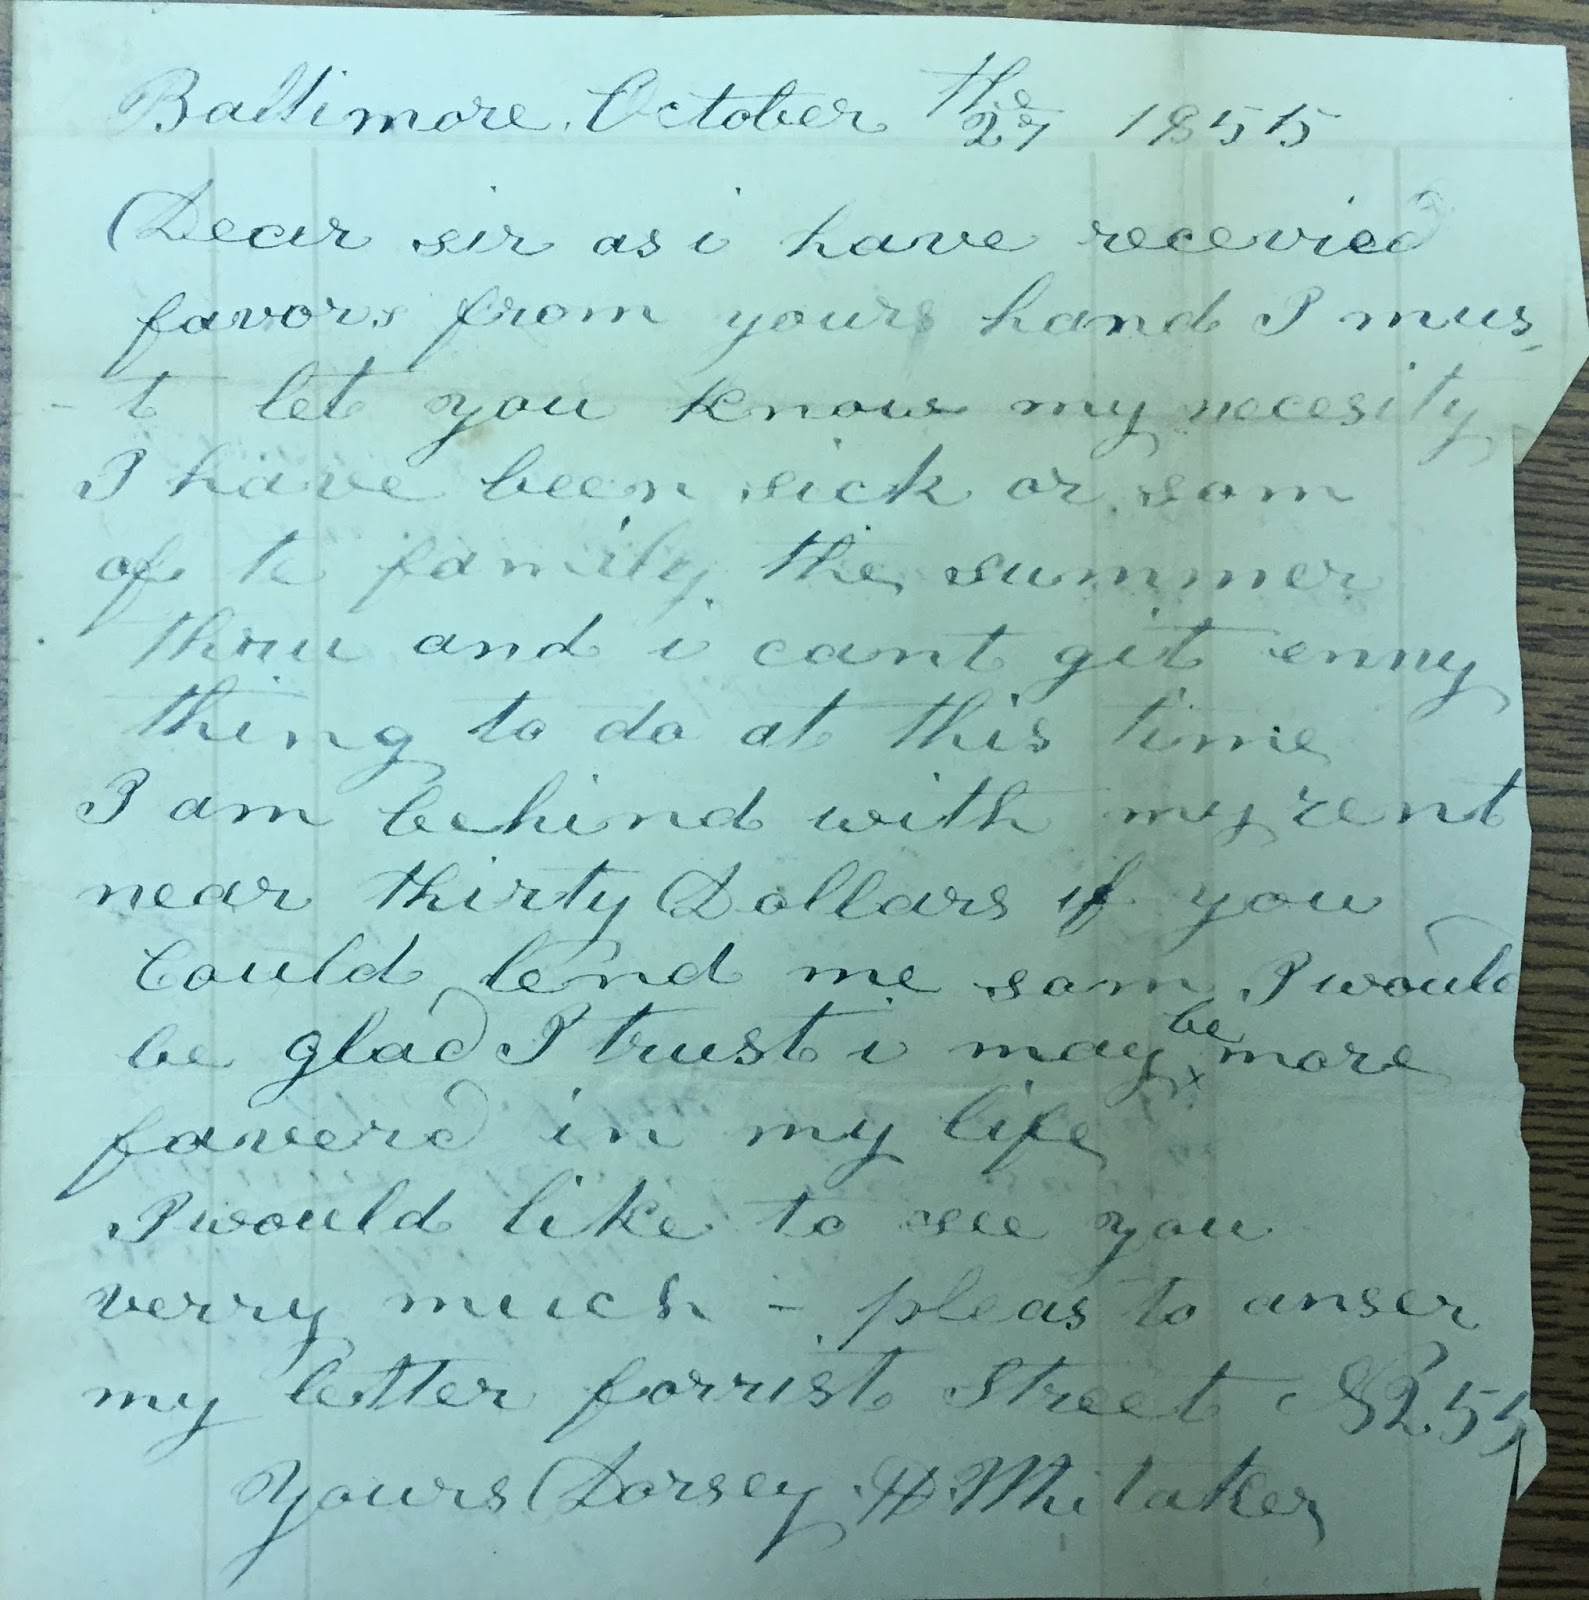 Baltimore. October the 27 1855
Dear sir as i have recevied
favors from yours hand I mus
-t let you know my necesity
I have been sick or som
of te family the summer
thru and i cant git enny
thing to do at this time
I am behind with my rent
near thirty Dollars if you
Could lend me som I would
be glad I trust i may be more
faverd in my life
I would like to see you
verry much - pleas to anser
my letter forrist Street No 255
Yours Dorsey H Whitaker